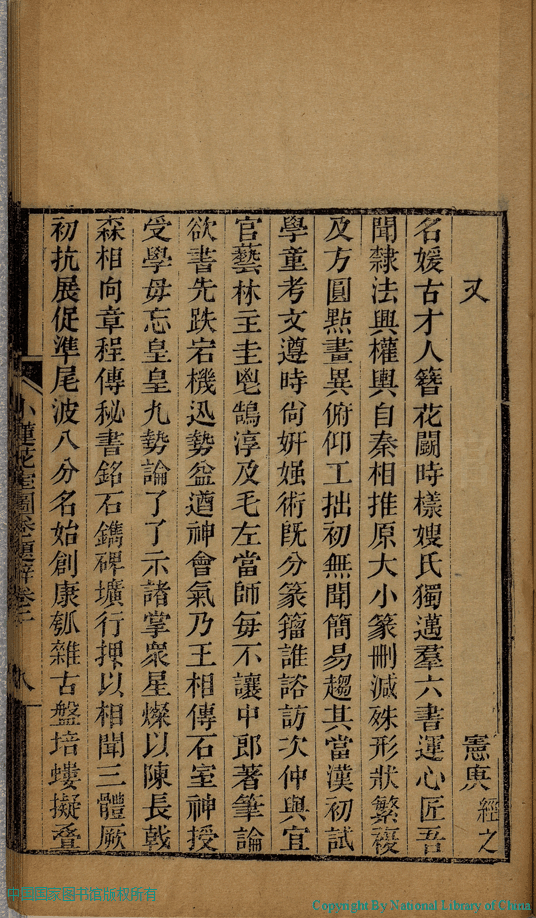 又
憲典 經之
名媛古才人簪花鬭時樣嫂氏獨邁羣六書運心匠吾
聞隸法興權輿自秦相推原大小篆刪減殊形狀繁複
及方圓㸃畫異俯仰工拙初無聞簡易趨其當漢初試
學童考文遵時尙妍媸術旣分篆籀誰諮訪次仲與宜
官藝林主圭鬯鵠淳及毛左當師每不讓中郎著筆論
欲書先跌宕機迅勢益遒神會氣乃王相傳石室神授
受學毋忘皇皇九勢論了了示諸掌衆星燦以陳長戟
森相向章程傳秘書銘石鐫碑壙行押以相聞三體厥
初抗展促準尾波八分名始創康瓠雜古盤培塿擬疊
小蓮花室圖卷題辭卷二 八
中国国家图书馆版权所有
Copyright By National Library of China